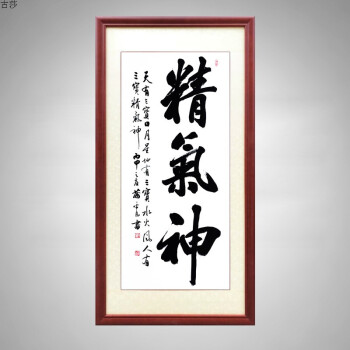 古莎
精氣神
天有三寶日月星地有三寶水火風人有
三寶精氣神 丙申之春
書